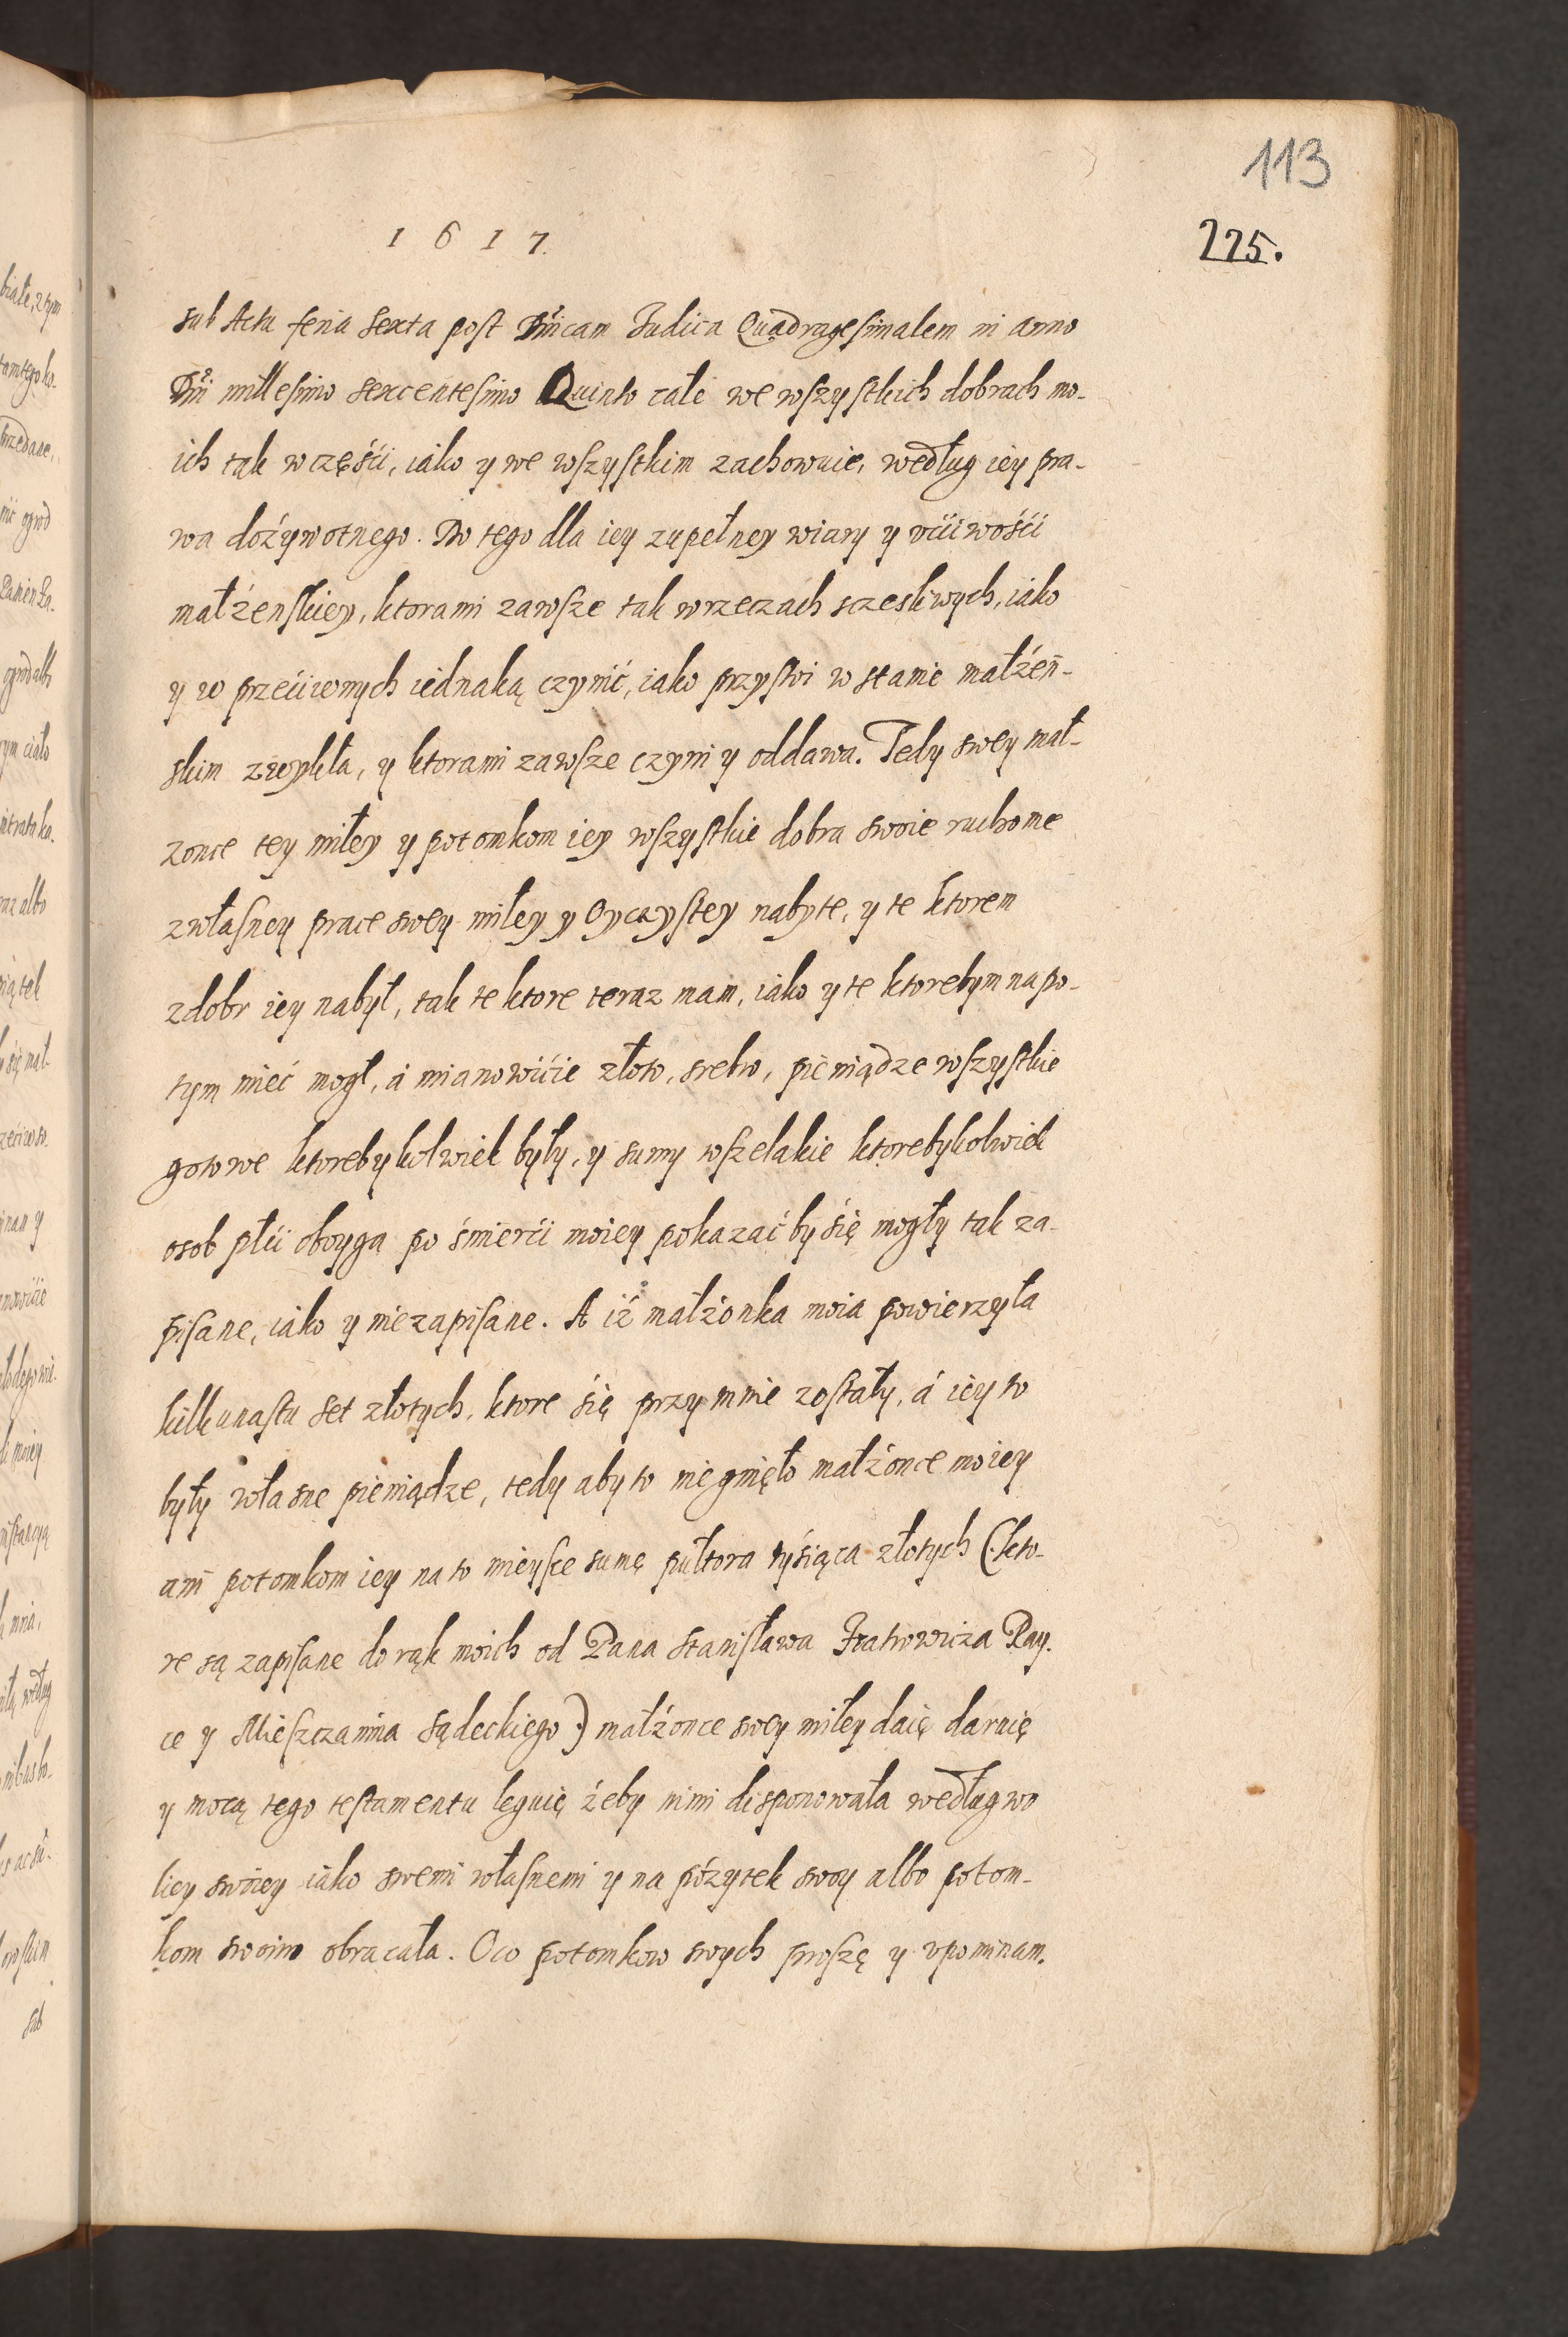 113
1617.
225.
sub Actu feria sexta post Dnicam Judica Quadragesimalem in anno
Dni millesimo sexcentesimo Quinto cale we wszystkich dobrach mo-
ich tak w częsci, iako y we wszystkim zachowuie, według iey pra-
wa dożywotnego. Do tego dla iey zupełney wiary y vcciwości
małżenskiey, ktora mi zawsze tak w rzeczach sczesliwych, iako
y w przeciwnych iednaką czynić, iako przystoi w stanie małżeń-
skim zwykła, y ktora mi zawsze czyni y oddawa. Tedy swey mał-
zonce tey miłey y potomkom iey wszystkie dobra swoie ruchome
z własney prace swey miłey y Oyczystey nabyte, y te ktorem
z dobr iey nabył, tak te ktore teraz mam, iako y te ktorebym na po-
tym mieć mogł, á mianowicie złoto, srebro, pieniądze wszystkie
gotowe ktorebykolwiek były, y sumy wszelakie ktorebykolwiek
osob płci oboyga po śmierci moiey pokazać by się mogły tak za-
pisane, iako y niezapisane. A iż małżonka moia powierzyła
kilkunastu set złotych, ktore się przy mnie zostały, á iey to
były własne pieniądze, tedy aby to nie ginęło małżonce moiey
ani potomkom iey na to mieysce sumę pułtora tysiąca złotych (kto-
re są zapisane do rąk moich od Pana Stanisława Ray-
ce y Mieszczanina Sądeckiego) małżonce swey miłey daię daruię
y mocą tego testamentu leguię żeby nimi disponowała według wo
liey swoiey iako swemi własnemi y na pożytek swoy albo potom-
kom swoim obracała. O co potomkow swych proszę y vpominam.